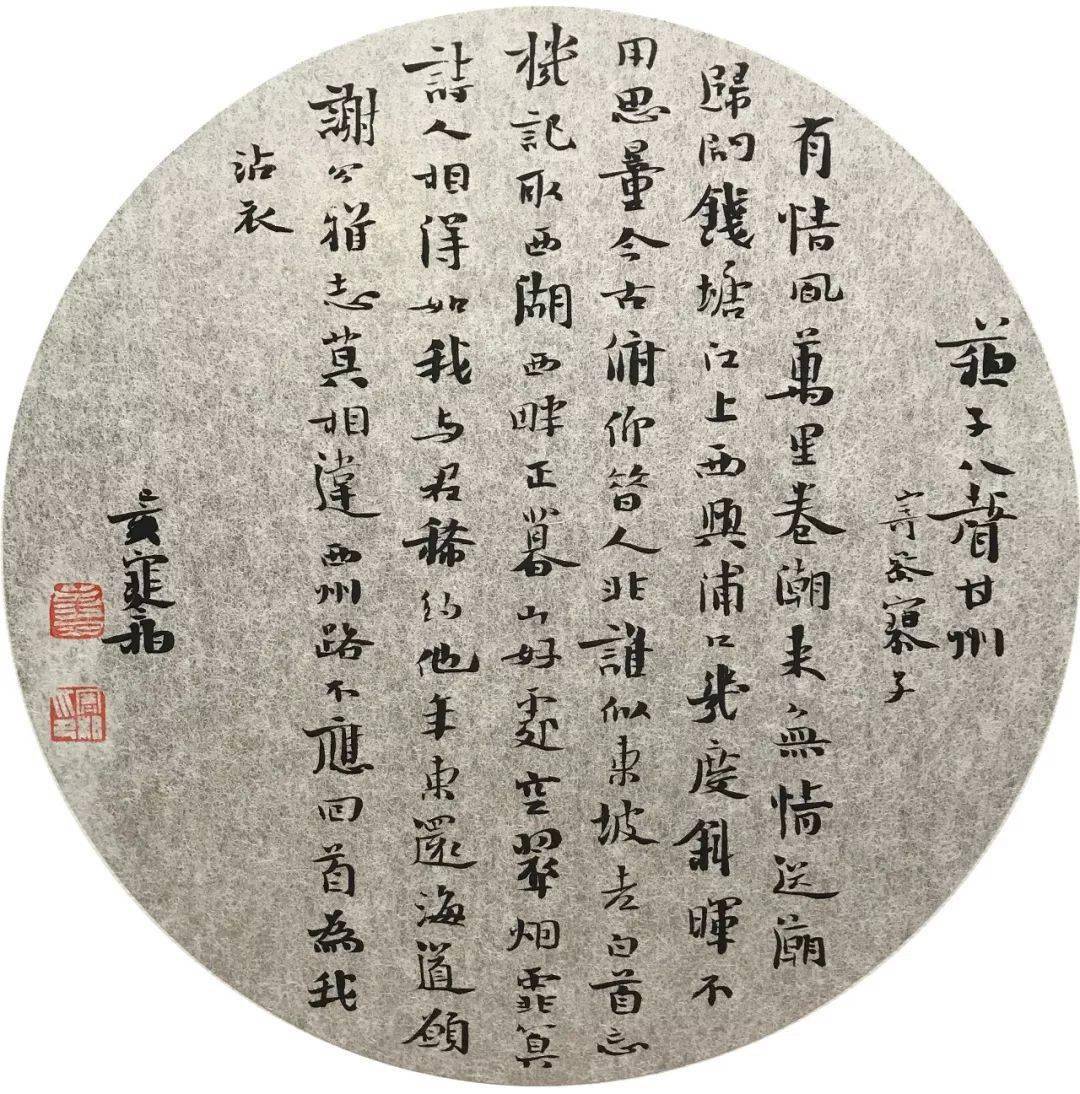 蘇子八聲甘州
寄參寥子
有情風萬里卷潮来無情送潮
歸問錢塘江上西興浦口幾度斜暉不
用思量今古俯仰昔人非誰似東坡老白首忘
機記取西湖西畔正暮山好處空翠烟霏算
詩人相得如我与君稀約他年東還海道願
謝公雅志莫相違西州路不應回首為我
沾衣